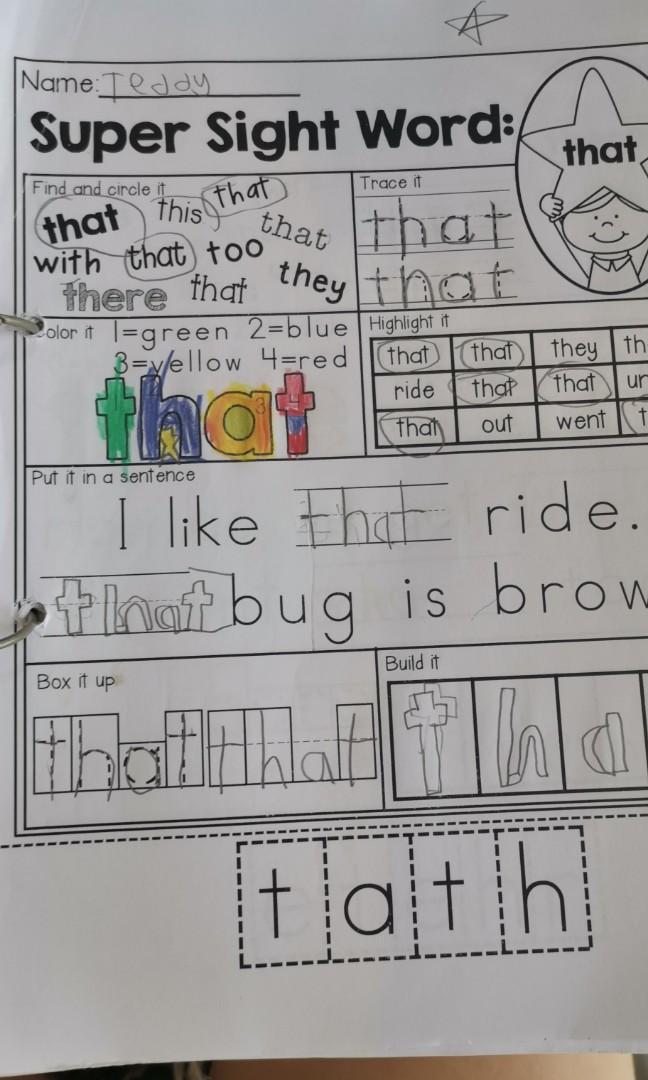 Name: Teddy
Super Sight Word:
that
Find and circle it
that this that
that
with that too
there that they
Trace it
that
that
Color it 1=green 2=blue
3=yellow 4=red
that
Highlight it
that that they th
ride that that un
that out went t
Put it in a sentence
I like that ride.
that bug is brow
Box it up
that that
Build it
t h a
t a t h